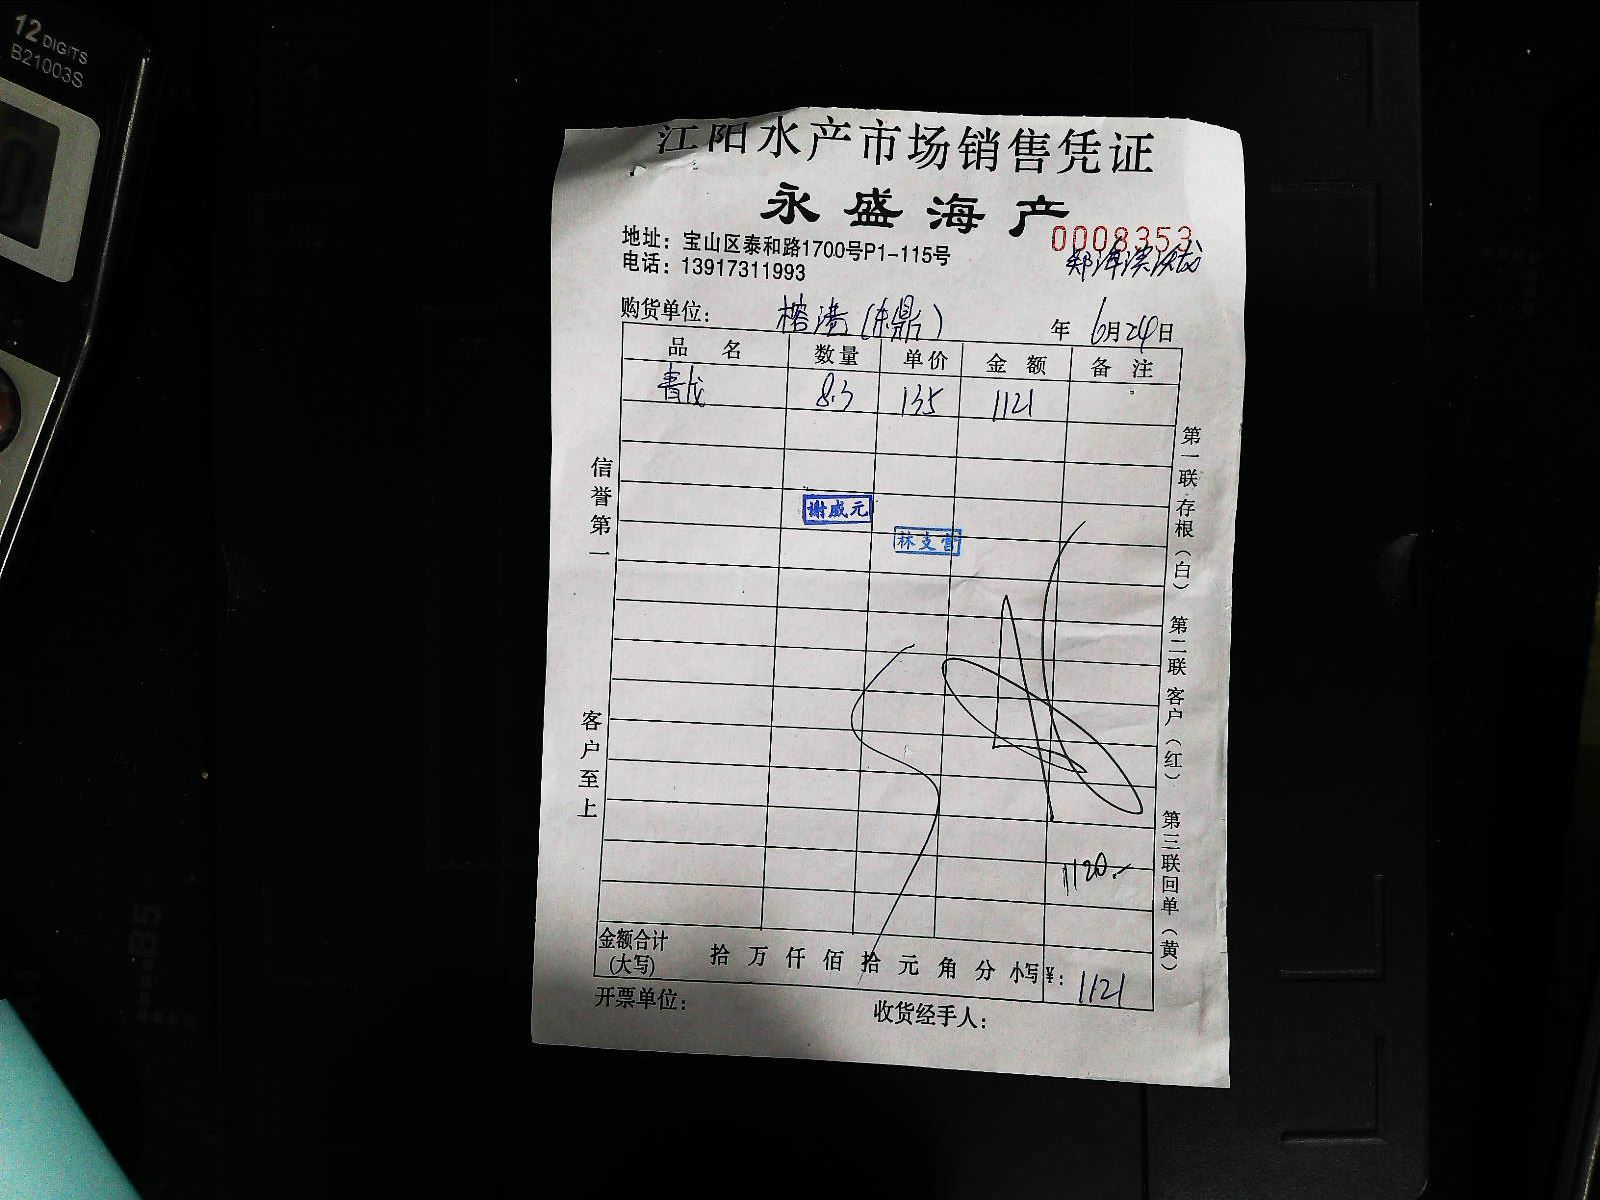 12 DIGITS
B21003S
江阳水产市场销售凭证
永盛海产
0008353
地址：宝山区泰和路1700号P1-115号
电话：13917311993
购货单位： 榕港(东鼎) 年 6月24日
品名 数量 单价 金额 备注
青戊 8.3 135 1121
谢盛元
林支营
信誉第一
客户至上
第一联存根（白） 第二联客户（红） 第三联回单（黄）
1120.-
金额合计(大写) 拾 万 仟 佰 拾 元 角 分 小写¥： 1121
开票单位： 收货经手人：